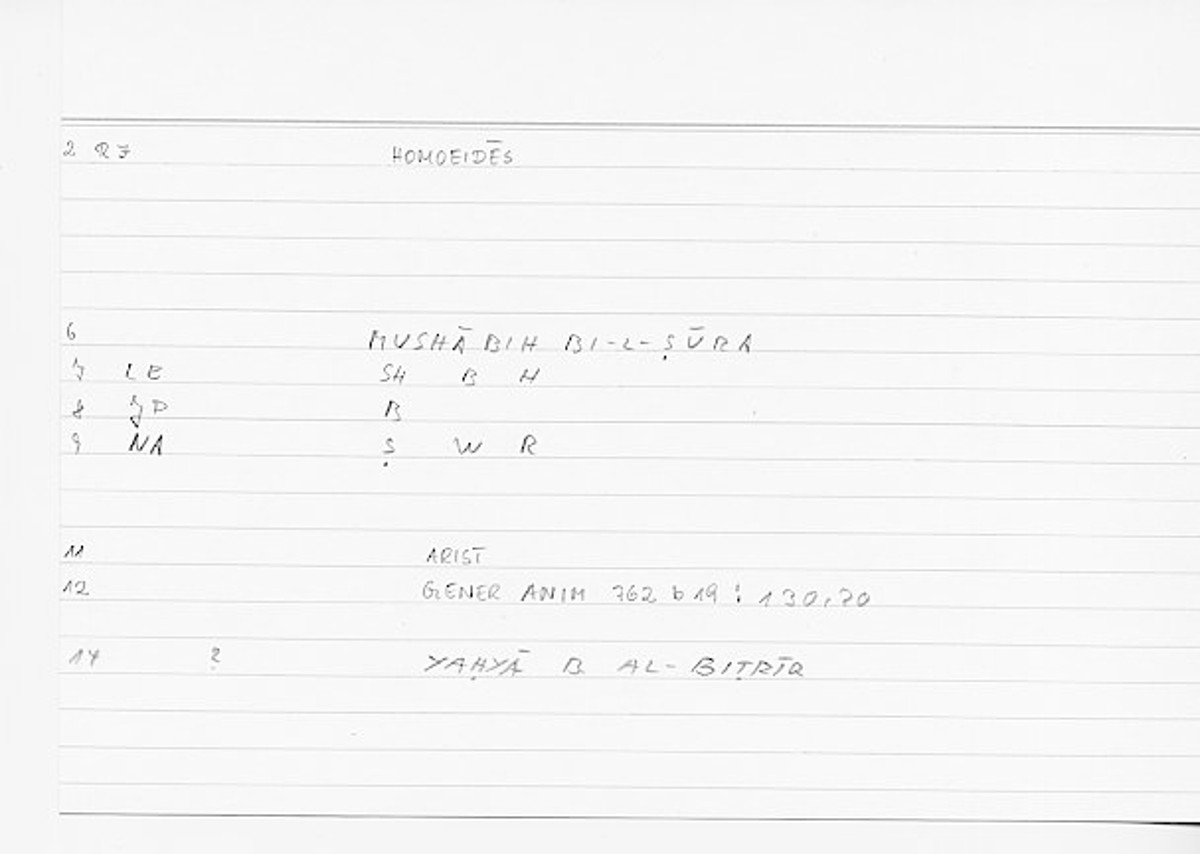 2 QJ HOMOEIDĒS
6 MUSHĀBIH BI-L-ṢŪRA
7 LE SH B H
8 JP B
9 NA Ṣ W R
11 ARIST
12 GENER ANIM 762 b 19 : 130,20
14 ? YAḤYĀ B AL-BIṬRĪQ